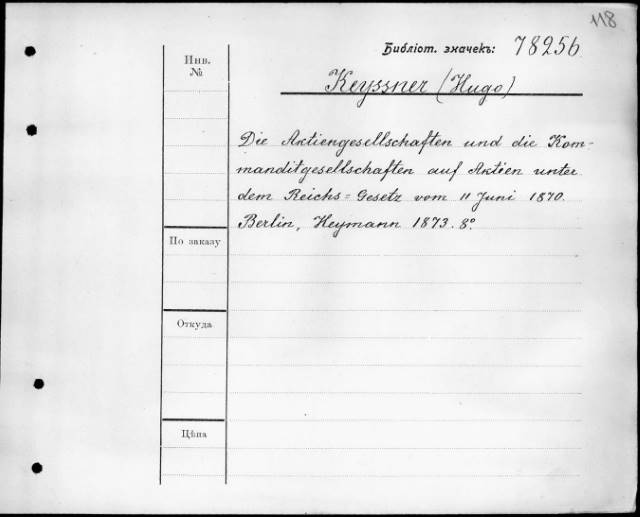 118
Библіот. значекъ: 78256
Инв.
№
Keyssner (Hugo)
Die Aktiengesellschaften und die Kom-
manditgesellschaften auf Aktien unter
dem Reichs=Gesetz vom 11 Juni 1870.
Berlin, Heymann 1873. 8º.
По заказу
Откуда
Цѣна